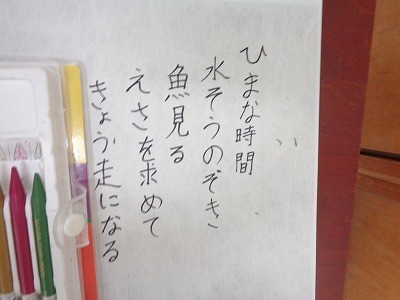 ひまな時間
水そうのぞき
魚見る
えさを求めて
きょう走になる